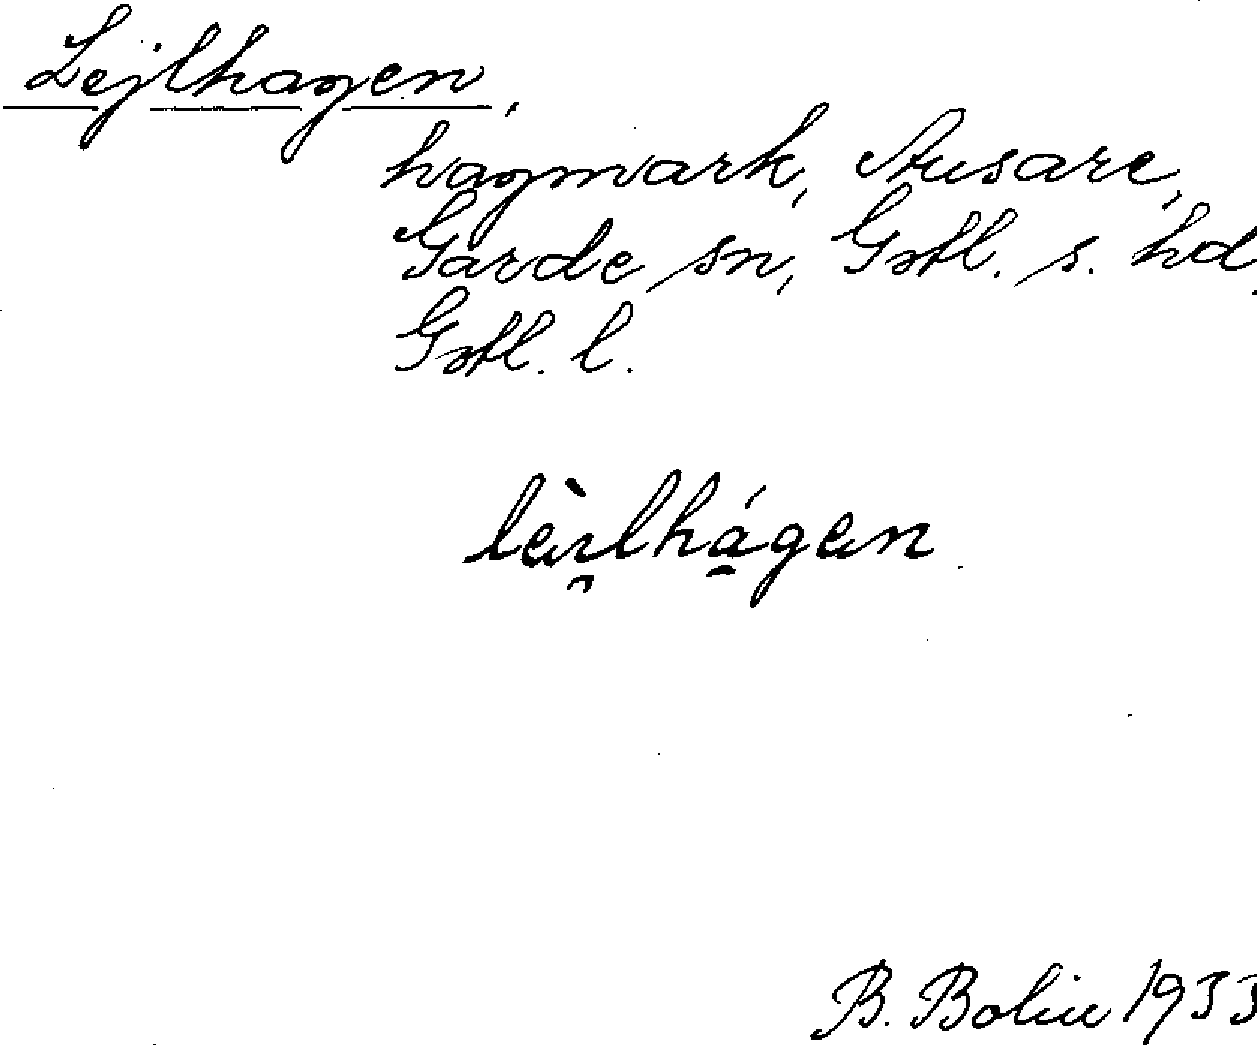 Lejlhagen,
hagmark, Ausare,
Garde sn, Gotl. s. hd,
Gotl. l.
lèi̯lhá̱gen
B. Bolin 1933